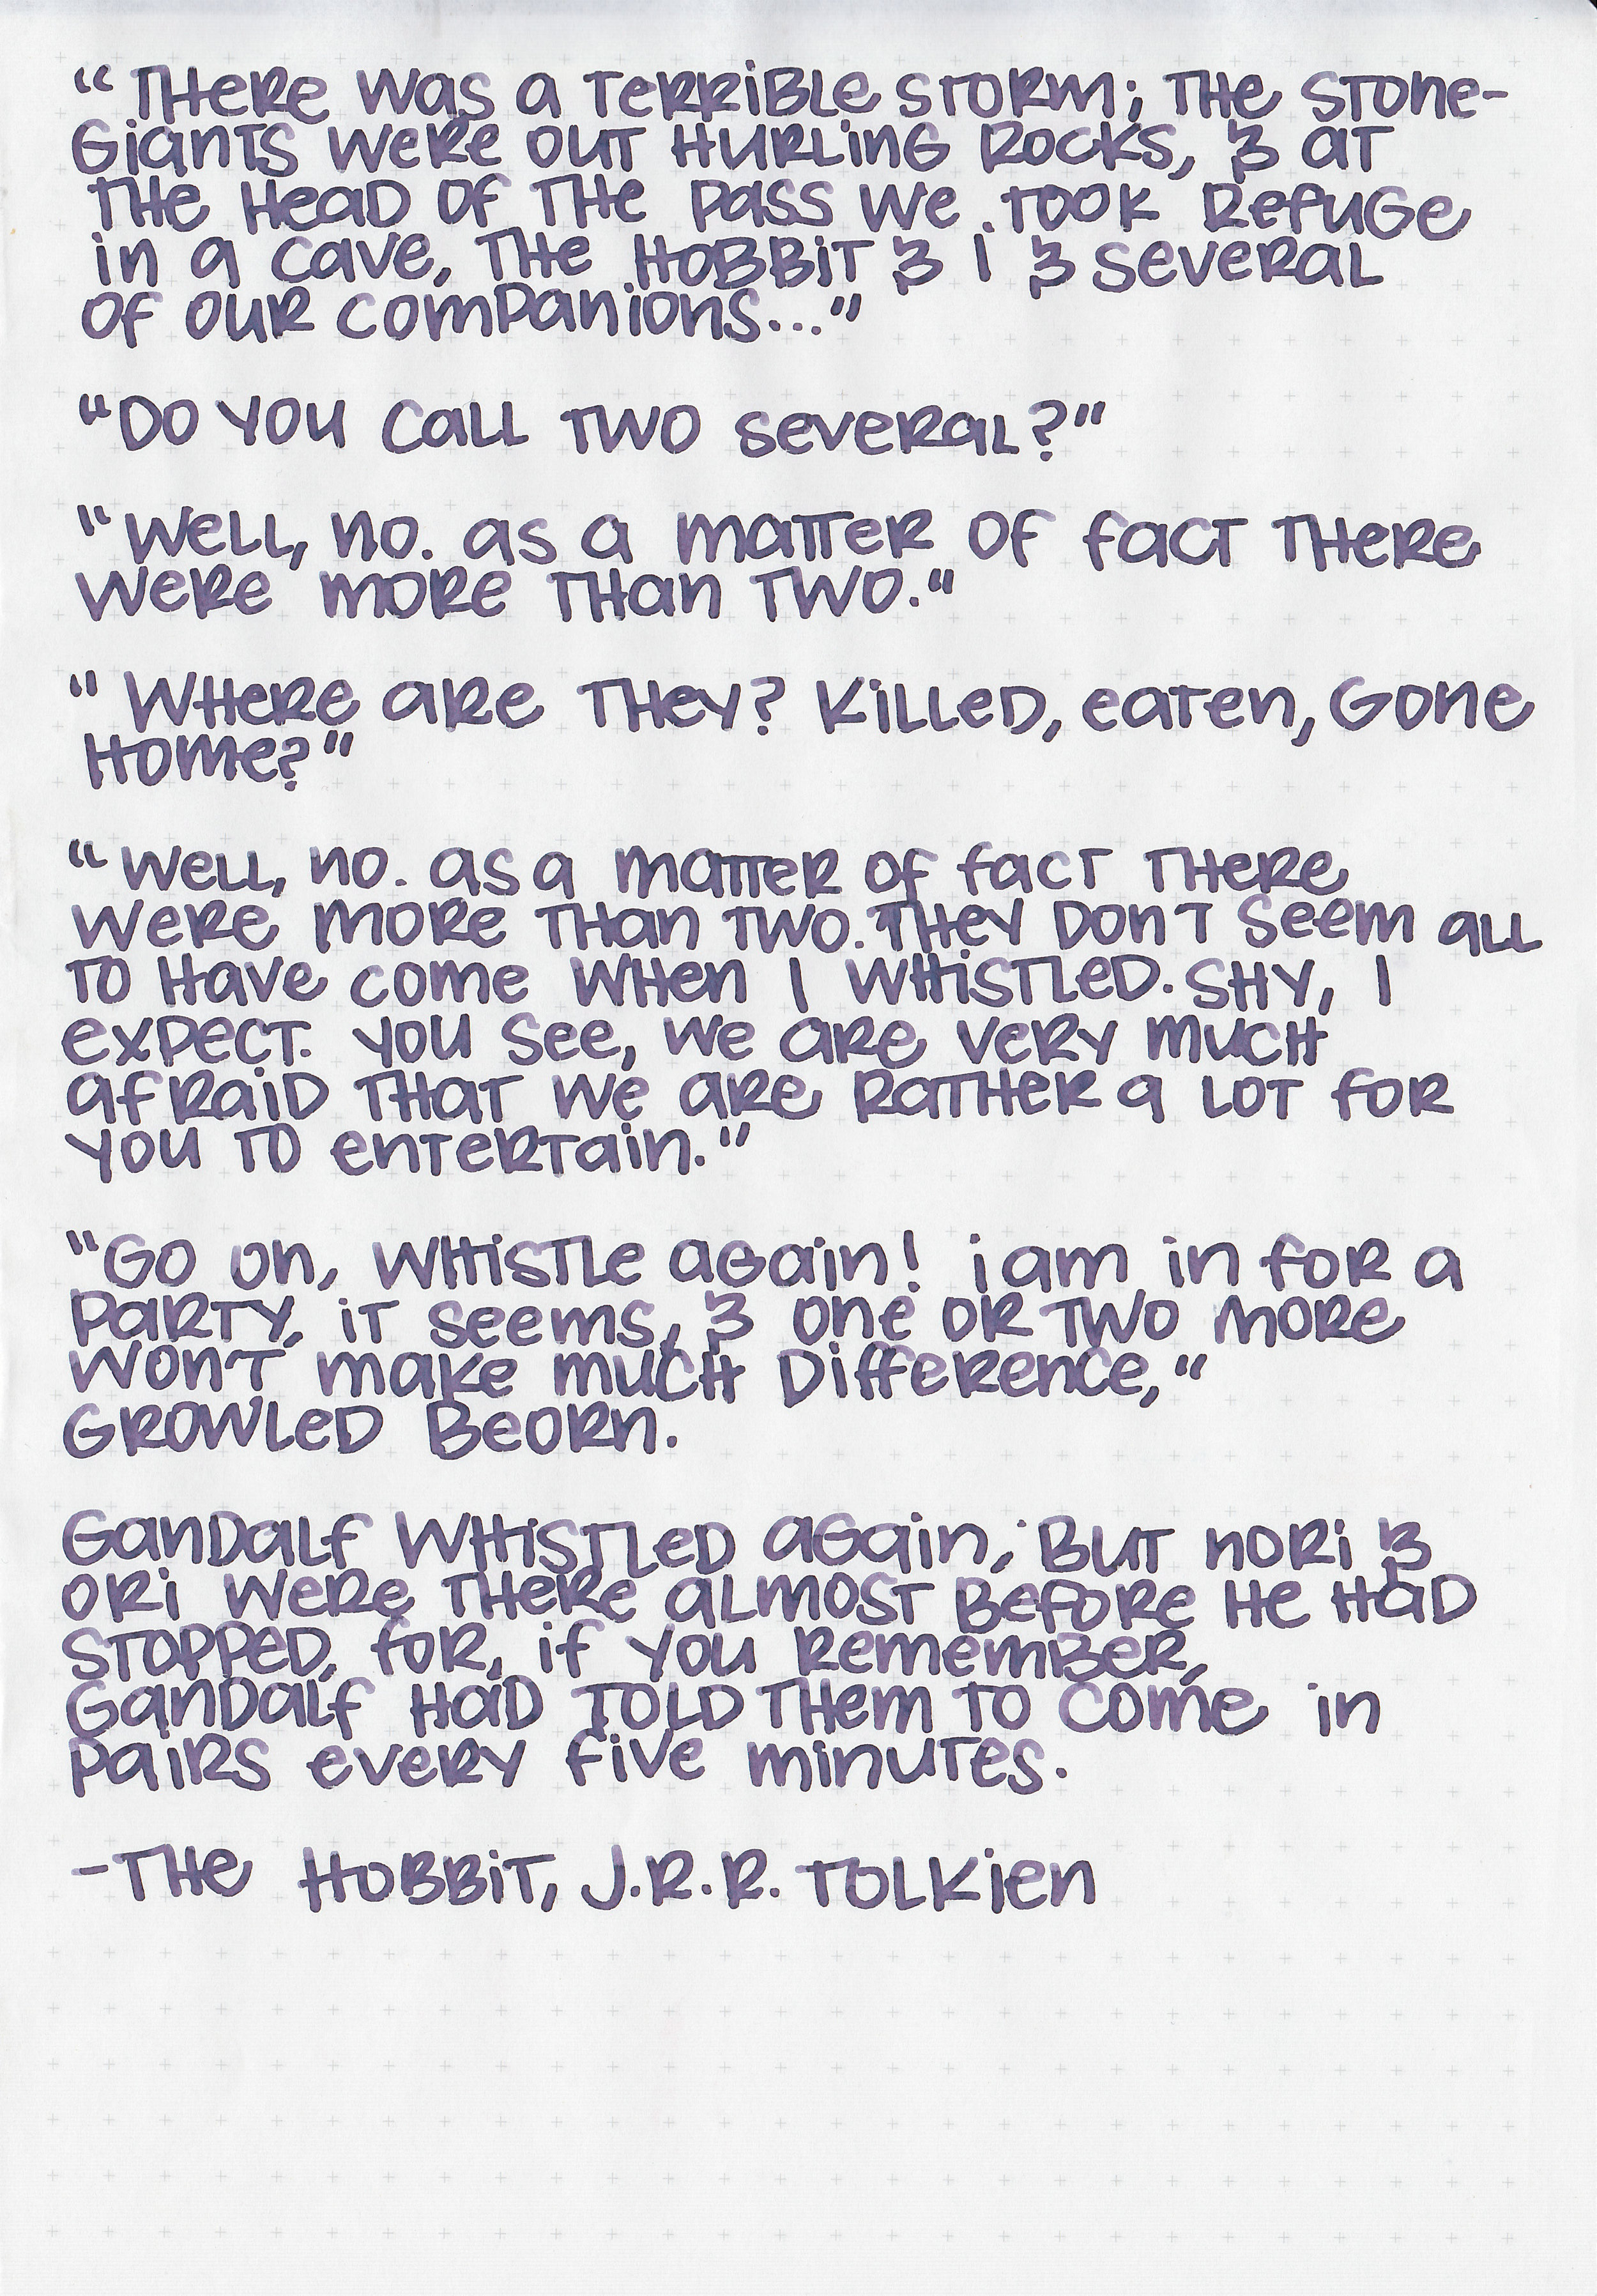 “There was a terrible storm; the stone-
giants were out hurling rocks, & at
the head of the pass we took refuge
in a cave, the Hobbit & I & several
of our companions...”
“Do you call two several?”
“Well, no. As a matter of fact there
were more than two.“
“Where are they? Killed, eaten, gone
home?”
“Well, no. As a matter of fact there
were more than two. They don't seem all
to have come when I whistled. Shy, I
expect. You see, we are very much
afraid that we are rather a lot for
you to entertain.”
“Go on, whistle again! I am in for a
party, it seems, & one or two more
won't make much difference,“
growled Beorn.
Gandalf whistled again; but Nori &
Ori were there almost before he had
stopped, for, if you remember,
Gandalf had told them to come in
pairs every five minutes.
-The Hobbit, J.R.R. Tolkien